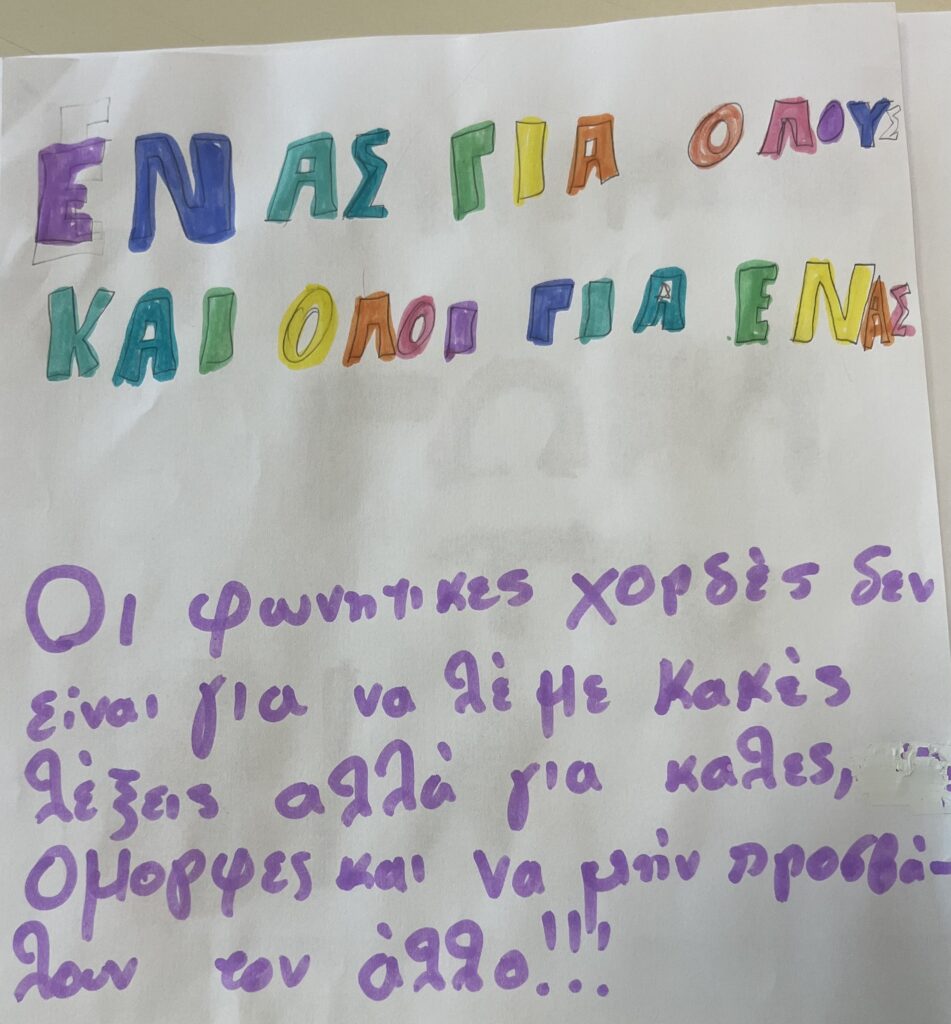 ΕΝΑΣ ΓΙΑ ΟΛΟΥΣ
ΚΑΙ ΟΛΟΙ ΓΙΑ ΕΝΑΣ
Οι φωνητικες χορδές δεν
είναι για να λέμε κακές
λέξεις αλλά για καλες,
όμορφες και να μην προσβά-
λουν τον άλλο!!!